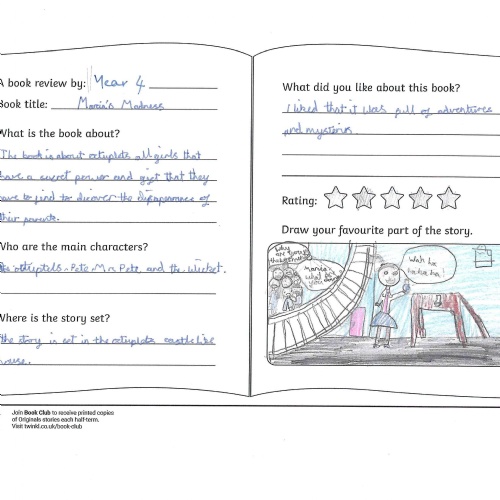 A book review by: Year 4
Book title: Maria's Madness
What is the book about?
The book is about octuplets all girls that
have a secret power and gift that they
have to find to discover the disapperance of
their parents.
Who are the main characters?
The octuplets, Pete, Mr Pete, and the
Where is the story set?
The story is set in the octuplets castle like
house.
Join Book Club to receive printed copies
of Originals stories each half-term.
Visit twinkl.co.uk/book-club
What did you like about this book?
I liked that it was full of adventures
and mysteries
Rating:
Draw your favourite part of the story.
Maria!
what
you
Wah ha
ha ha ha!